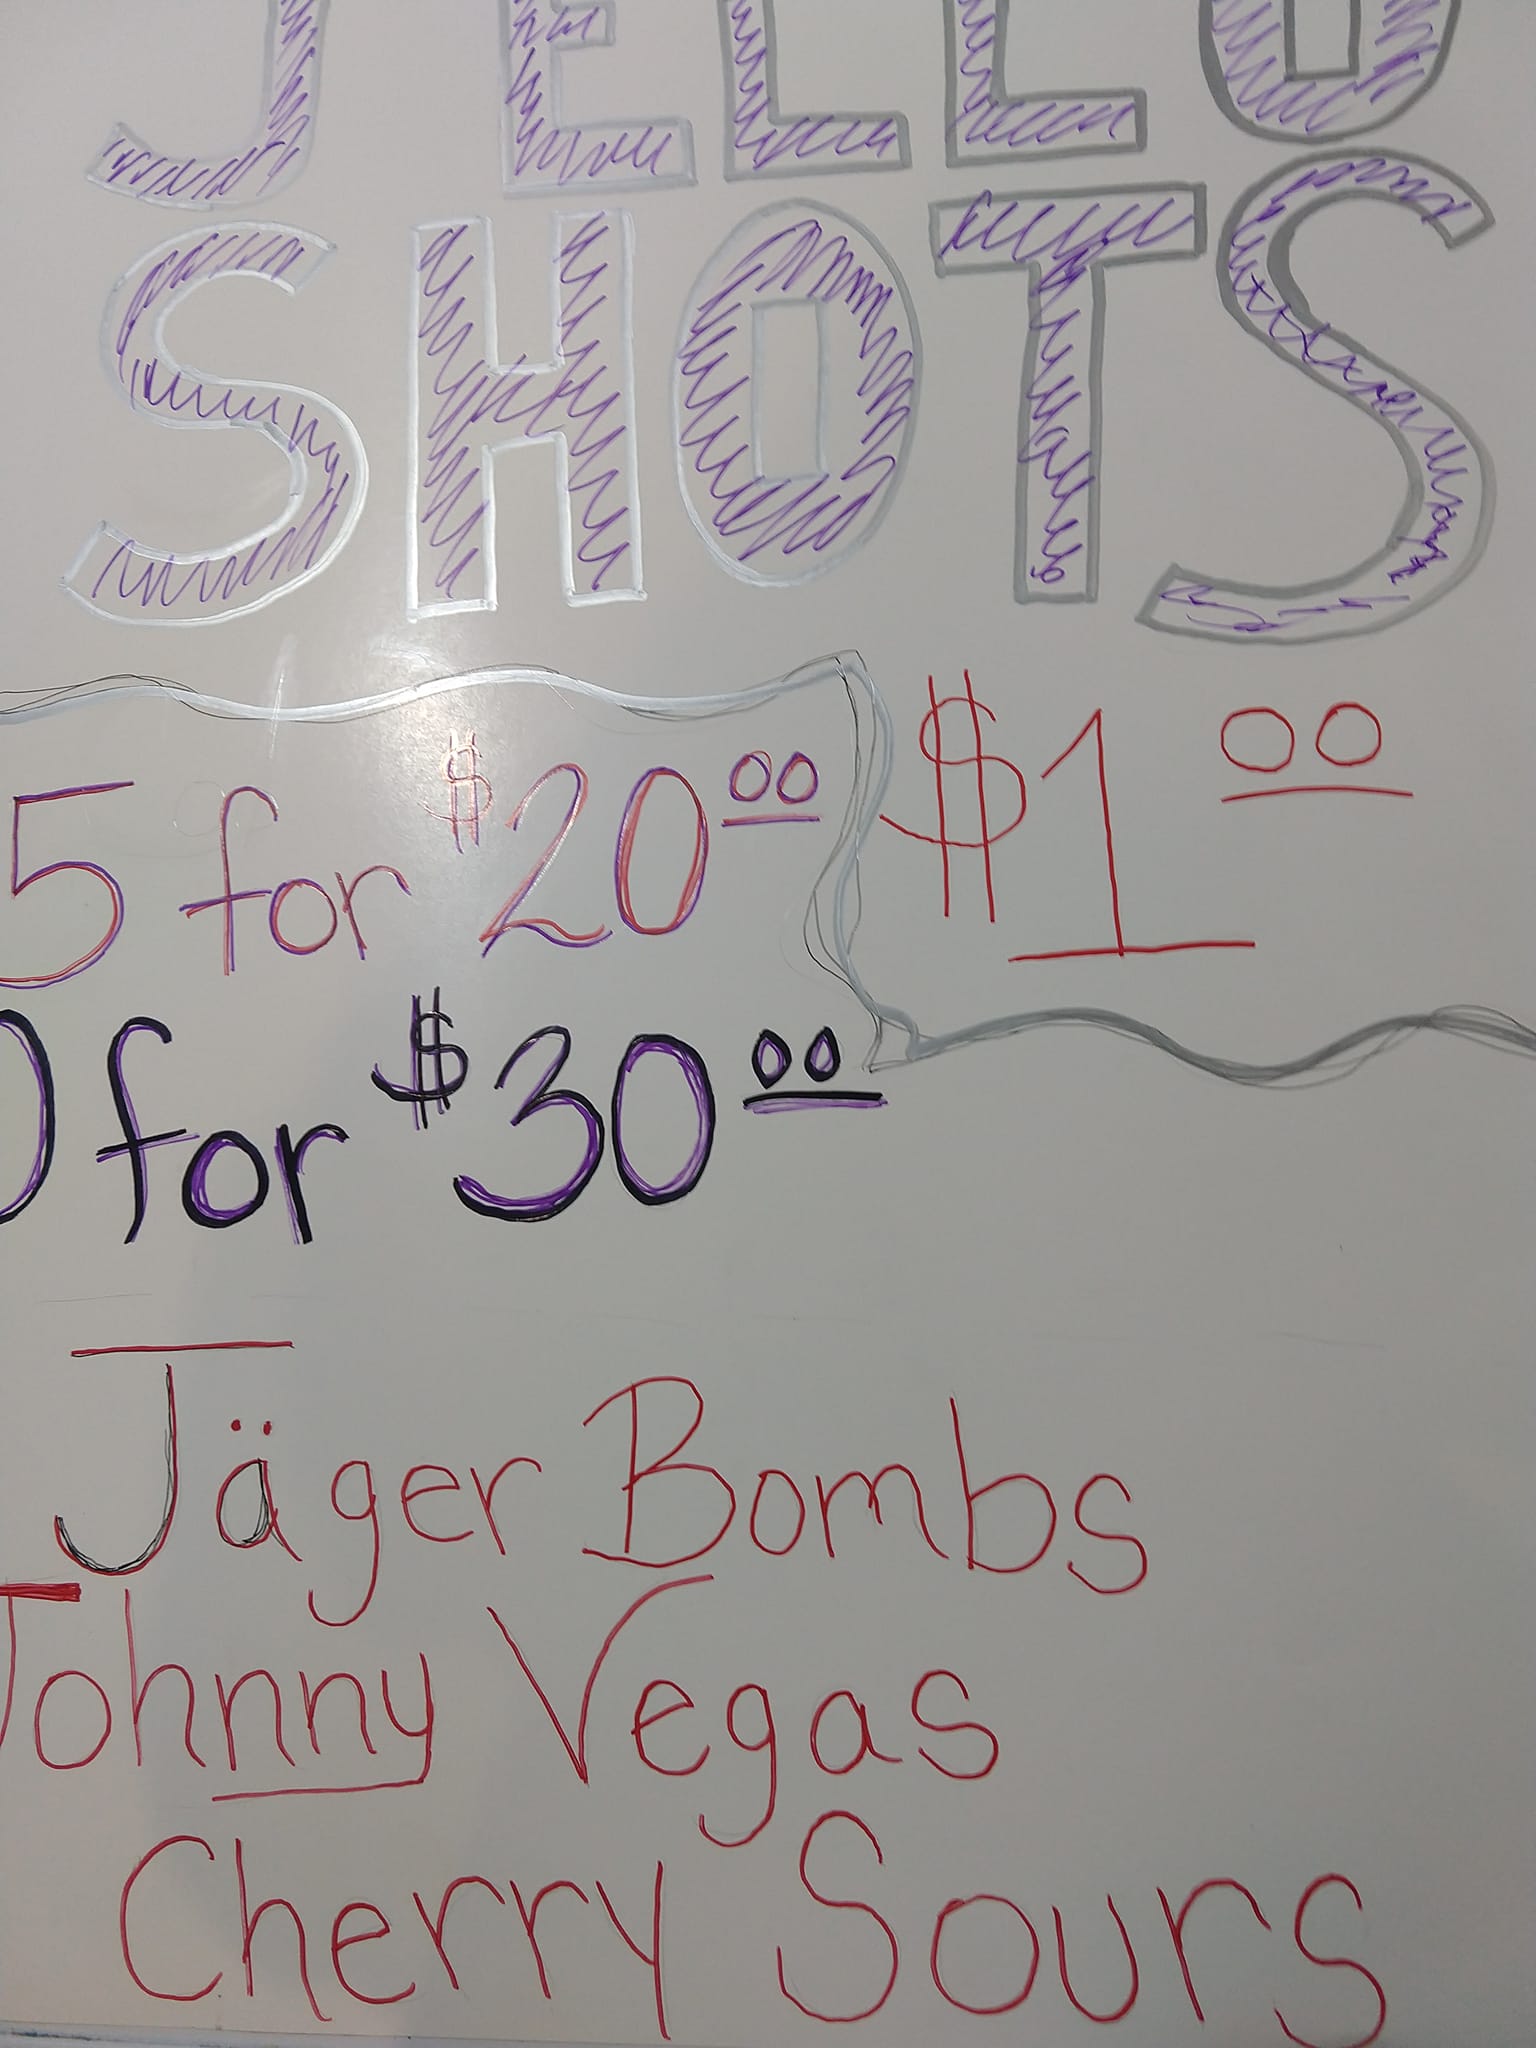 JELLO
SHOTS
$1.00
5 for $20.00
for $30.00
Jäger Bombs
Johnny Vegas
Cherry Sours